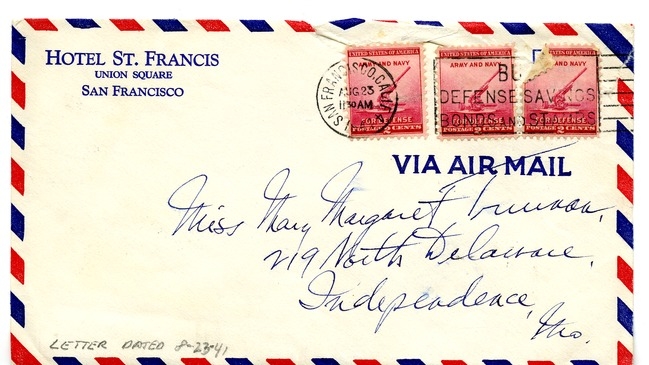 HOTEL ST. FRANCIS
UNION SQUARE
SAN FRANCISCO
SAN FRANCISCO, CALIF.
AUG 23
1130 AM
UNITED STATES OF AMERICA
ARMY AND NAVY
FOR DEFENSE
POSTAGE 2 CENTS
UNITED STATES OF AMERICA
ARMY AND NAVY
FOR DEFENSE
POSTAGE 2 CENTS
UNITED STATES OF AMERICA
ARMY AND NAVY
FOR DEFENSE
POSTAGE 2 CENTS
DEFENSE SAVINGS
BONDS AND STAMPS
VIA AIR MAIL
Miss Mary Margaret Truman,
219 North Delaware,
Independence,
Mo.
LETTER DATED 8-23-41